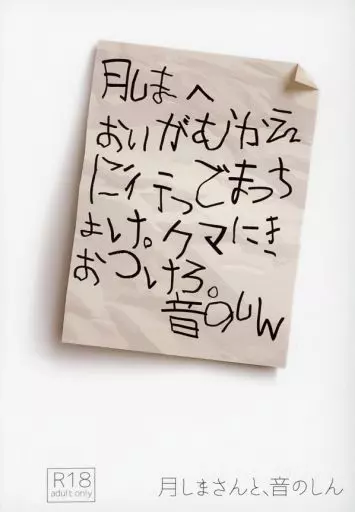 月しまへ
おいがむかえ
に行っどまっち
ょけ。クマにき
おつけろ。
音のしん
R18
adult only
月しまさんと、音のしん